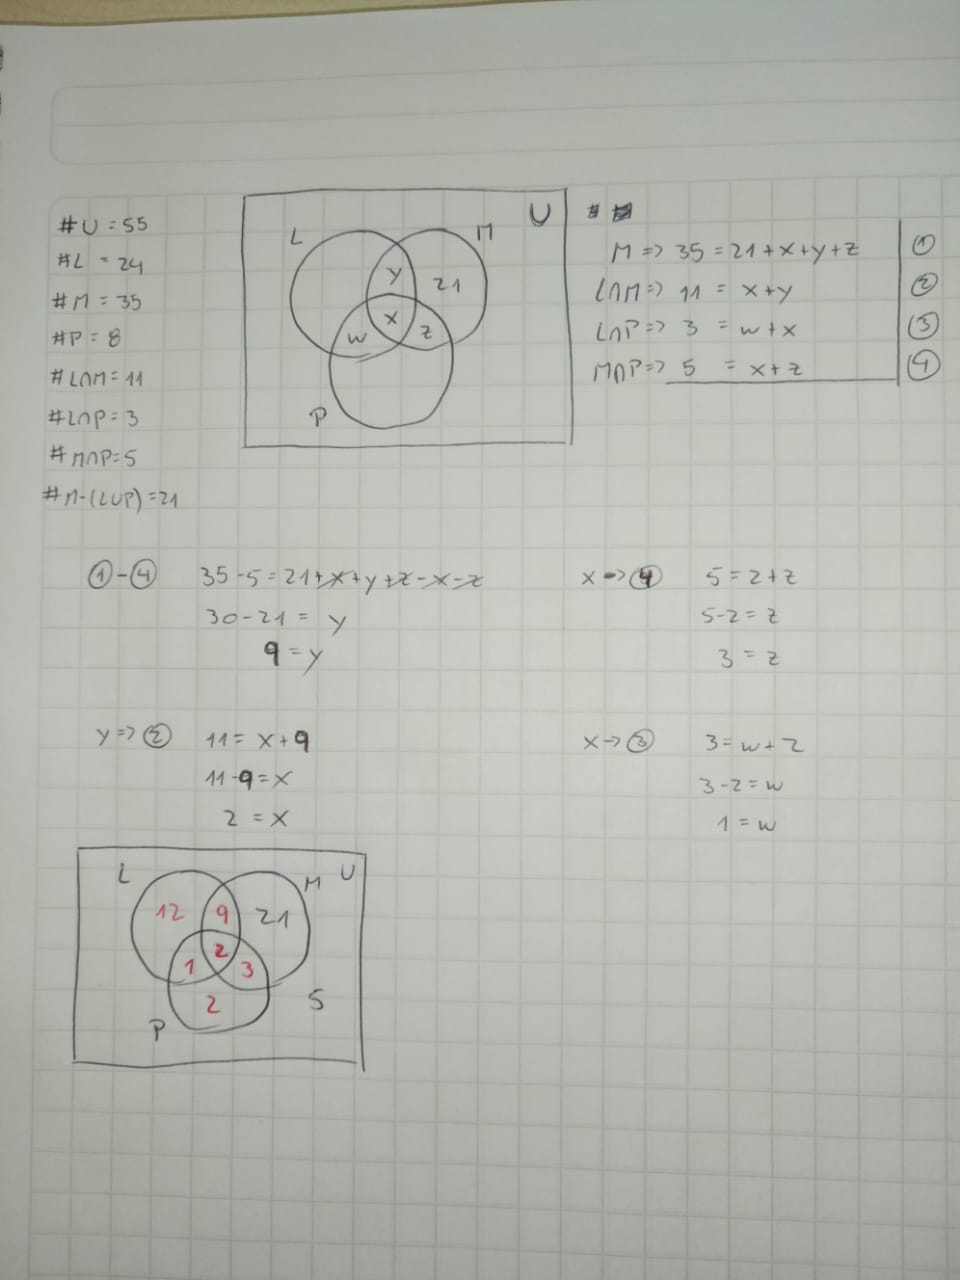 #U = 55
#L = 24
#M = 35
#P = 8
#L∩M = 11
#L∩P = 3
#M∩P = 5
#M-(L∪P) = 21
U
L
M
y
21
x
w
z
P
#
M => 35 = 21 + x + y + z ①
L∩M => 11 = x + y ②
L∩P => 3 = w + x ③
M∩P => 5 = x + z ④
① - ④ 35 - 5 = 21 + x + y + z - x - z
30 - 21 = y
9 = y
x => ④ 5 = 2 + z
5 - 2 = z
3 = z
y => ② 11 = x + 9
11 - 9 = x
2 = x
x -> ③ 3 = w + 2
3 - 2 = w
1 = w
L
M
U
12
9
21
2
1
3
2
5
P